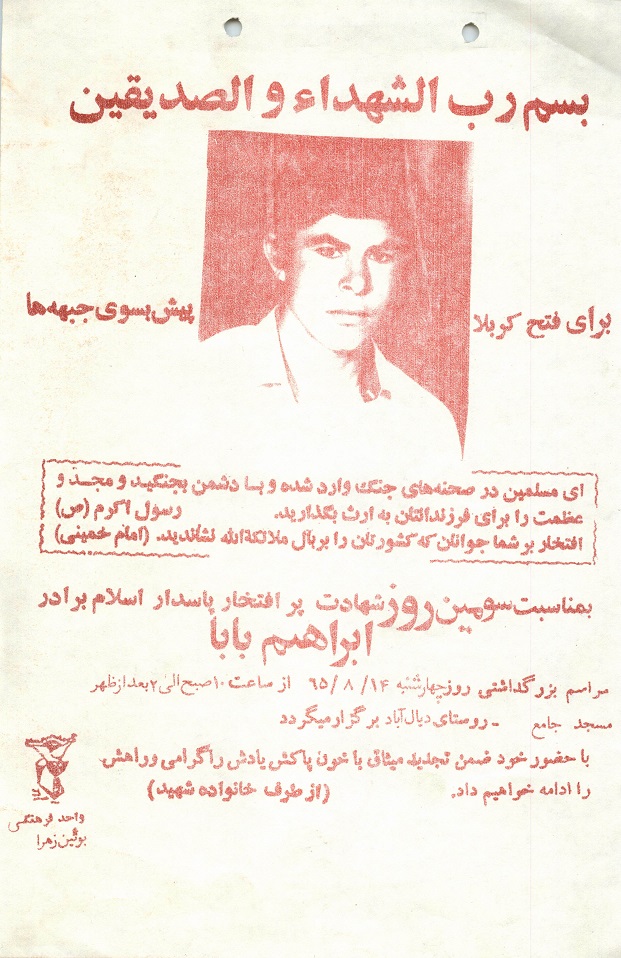 بسم رب الشهداء والصدیقین
برای فتح کربلا
پیش بسوی جبهه‌ها
ای مسلمین در صحنه‌های جنگ وارد شده و بسا دشمن بجنگید و مجد و
عظمت را برای فرزندانتان به ارث بگذارید. رسول اکرم (ص)
افتخار بر شما جوانان که کشورتان را بربال ملائکةالله نشاندید. (امام خمینی)
بمناسبت سومین روز شهادت پر افتخار پاسدار اسلام برادر
ابراهیم بابا
مراسم بزرگداشتی روز چهارشنبه ۶۵/۸/۱۴ از ساعت ۱۰ صبح الی ۲ بعد از ظهر
مسجد جامع - روستای دیال‌آباد برگزار میگردد
با حضور خود ضمن تجدید میثاق با خون پاکش یادش را گرامی و راهش
را ادامه خواهیم داد. (از طرف خانواده شهید)
واحد فرهنگی
بوئین زهرا